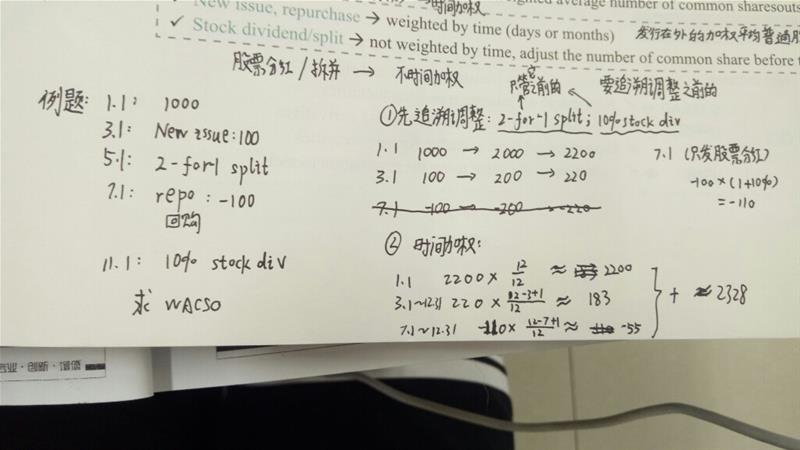 时间加权 average number of common sharesouts
✓ New issue, repurchase → weighted by time (days or months) 发行在外的加权平均普通股
✓ Stock dividend/split → not weighted by time, adjust the number of common share before
股票分红/拆并 → 不时间加权 只管之前的 要追溯调整之前的
例题: 1.1: 1000
3.1: New issue: 100
5.1: 2-for-1 split
7.1: repo: -100
回购
11.1: 10% stock div
求 WACSO
①先追溯调整: 2-for-1 split; 10% stock div
1.1 1000 → 2000 → 2200
3.1 100 → 200 → 220
7.1 -100 → -200 → -220
7.1 (只发股票分红)
-100 × (1+10%)
= -110
② 时间加权:
1.1 2200 × 12/12 ≈ 2200
3.1~12.31 220 × 12-3+1/12 ≈ 183
7.1~12.31 -110 × 12-7+1/12 ≈ -55
+ ≈ 2328